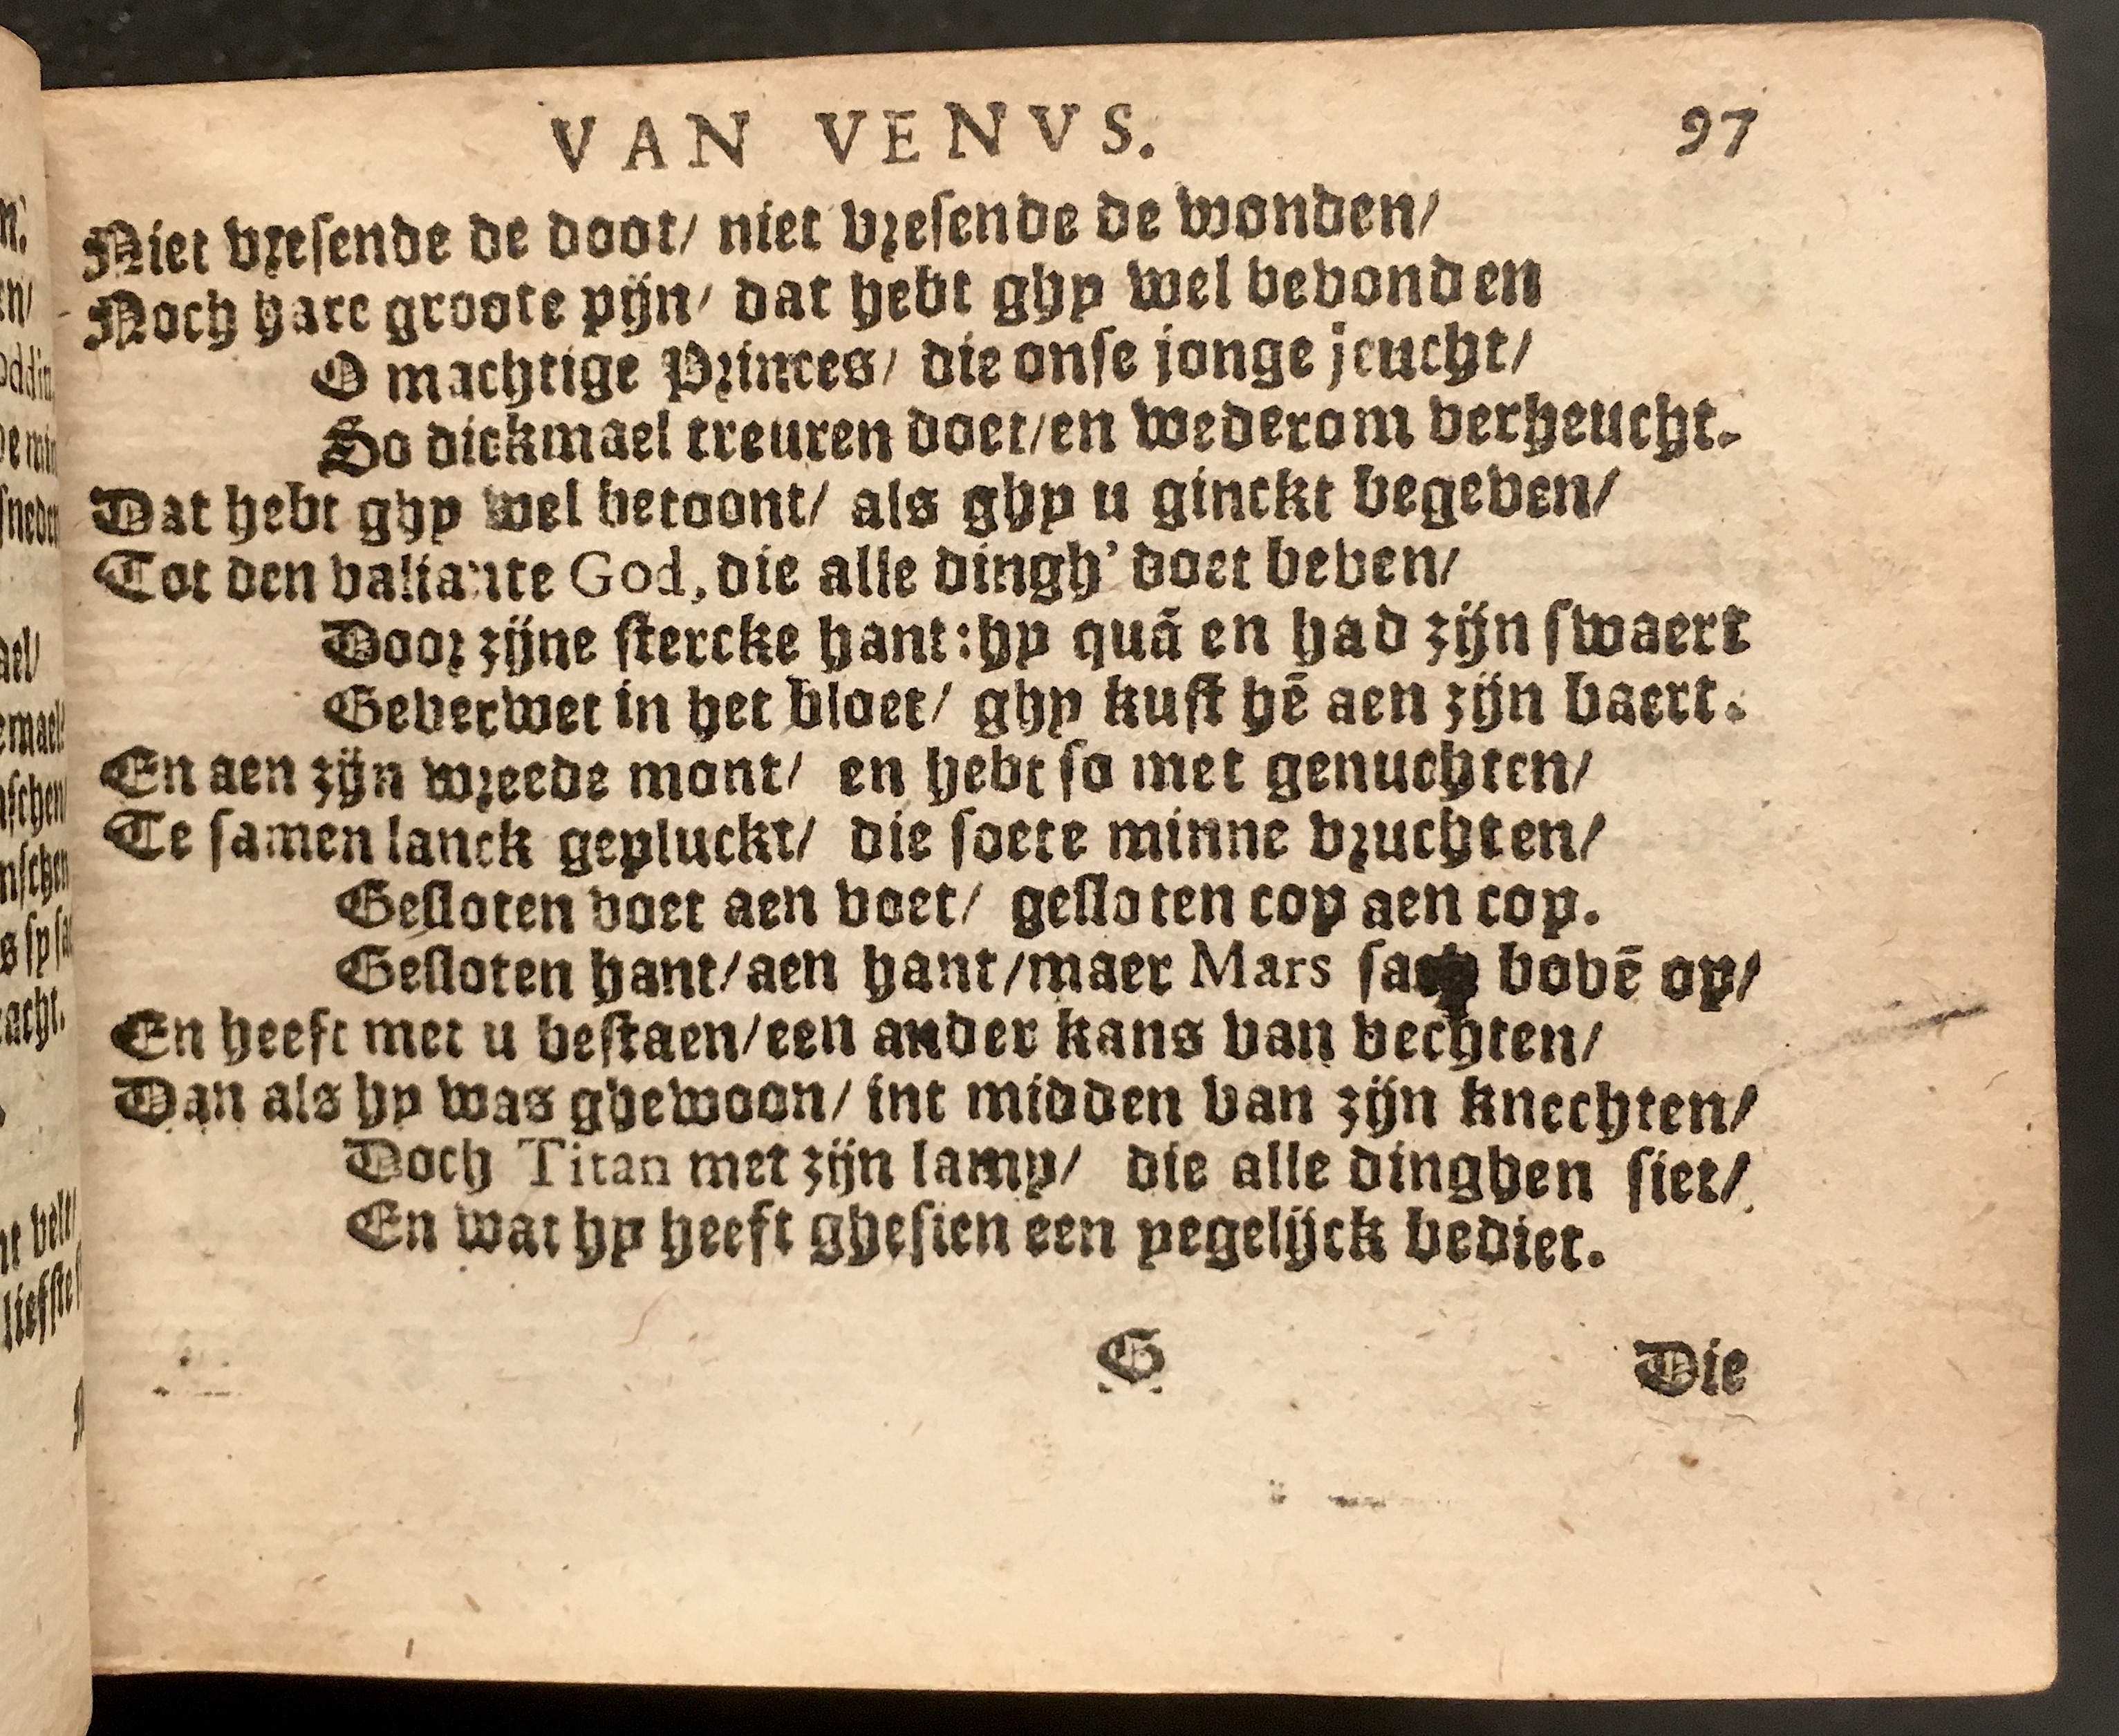 VAN VENVS. 97
Niet vreſende de doot/ niet vreſende de wonden/
Noch hare groote pijn/ dat hebt ghy wel bevonden
O machtige Princes/ die onſe jonge jeucht/
So dickmael treuren doet/en wederom verheucht.
Dat hebt ghy wel betoont/ als ghy u ginckt begeven/
Tot den valiante God, die alle dingh' doet beven/
Door zijne ſtercke hant: hy quã en had zijn ſwaert
Geverwet in het bloet/ ghy kuſt hẽ aen zijn baert.
En aen zijn wreede mont/ en hebt ſo met genuchten/
Te ſamen lanck gepluckt/ die ſoete minne vruchten/
Geſloten voet aen voet/ geſloten cop aen cop.
Geſloten hant/aen hant/maer Mars bovẽ op/
En heeft met u beſtaen/een ander kans van vechten/
Dan als hy was ghewoon/ int midden van zijn knechten/
Doch Titan met zijn lamp/ die alle dinghen ſiet/
En wat hy heeft gheſien een yegelijck bediet.
G Die